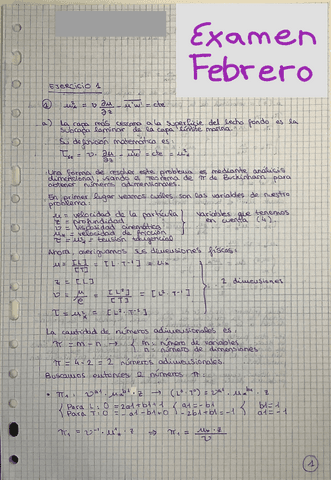 Examen
Febrero
EJERCICIO 1
① u*² = ν ∂u/∂z - u'w' = cte
a) La capa más cercana a la superficie del lecho fondo es la
subcapa laminar de la capa límite marina.
Su definición matemática es:
= ν · ∂u/∂z - u'w' = cte = u*²
Una forma de resolver este problema es mediante análisis
dimensional, usando el teorema de π de Buckinham para
obtener números adimensionales.
En primer lugar veamos cuáles son las variables de nuestro
problema:
u = velocidad de la partícula
z = profundidad
ν = viscosidad cinemática
u* = velocidad de fricción
τ = u*² = tensión tangencial
variables que tenemos
en cuenta (4).
Ahora, averiguamos sus dimensiones físicas:
u = [L]/[T] = [L·T⁻¹] = u*
z = [L]
ν = μ/ρ = [L²]/[T] = [L²·T⁻¹]
τ = u*² = [L²·T⁻²]
2 dimensiones
La cantidad de números adimensionales es:
π = m - n → m = número de variables
n = número de dimensiones
π = 4 - 2 = 2 números adimensionales.
Buscamos entonces 2 números π:
• π₁ = ν^a1 · u*^b1 · z → (L⁰·T⁰) = ν^a1 · u*^b1 · z
Para L: 0 = 2a1 + b1 + 1
Para T: 0 = -a1 - b1 + 0
a1 = -b1
-2b1 + b1 = -1
b1 = 1
a1 = -1
π₁ = ν⁻¹ · u* · z ⇒ π₁ = u*·z/ν
1